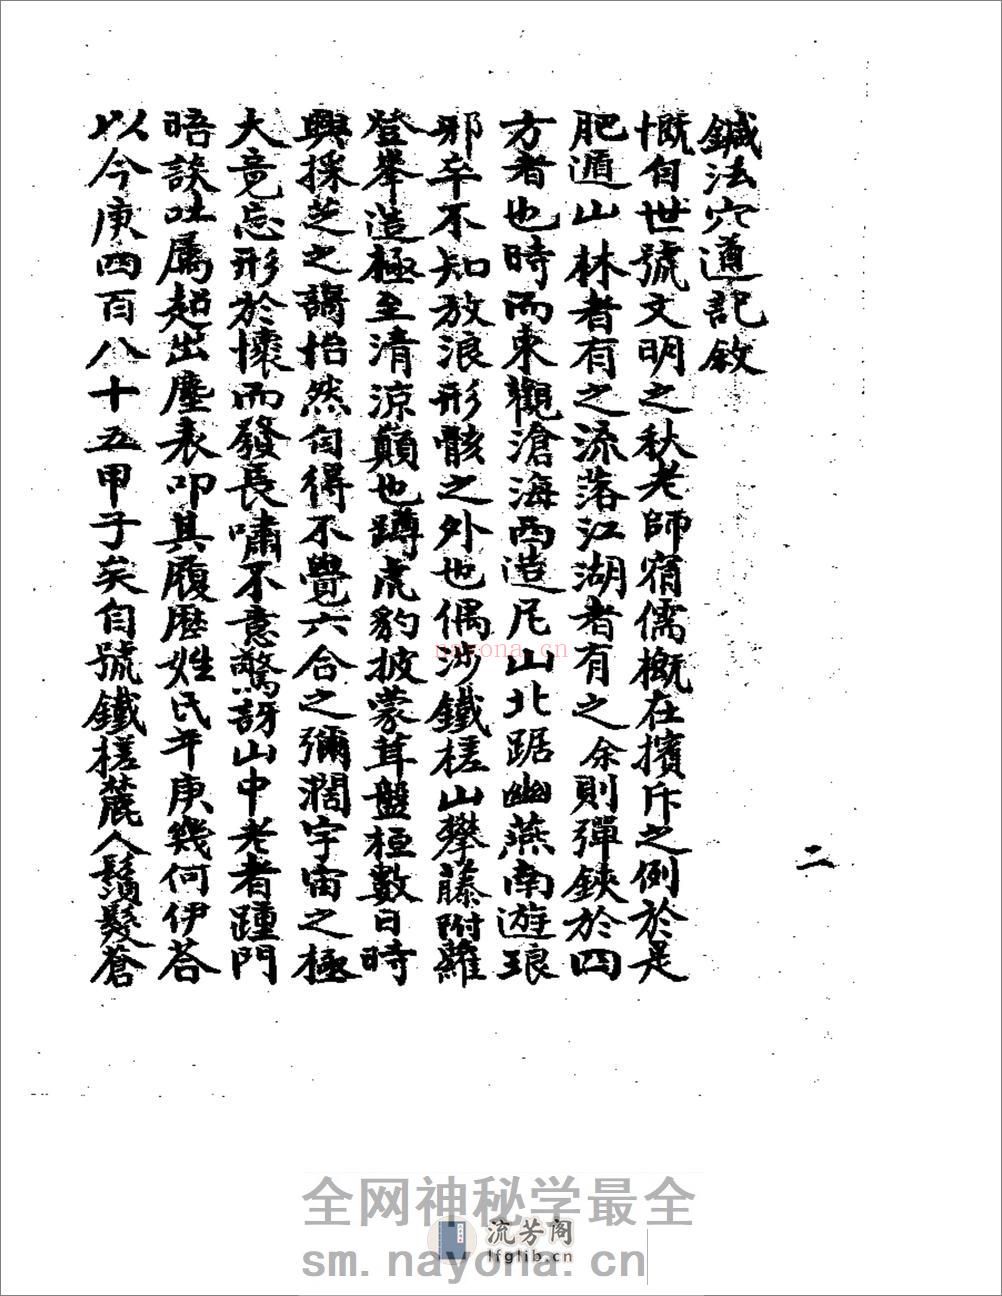 鍼法穴道記敘
慨自世號文明之秋老師宿儒概在擯斥之例於是
肥遁山林者有之流落江湖者有之余則彈鋏於四
方者也時而東觀滄海西造尼山北踞幽燕南遊琅
邪卒不知放浪形骸之外也偶涉鐵槎山攀藤附蘿
登峯造極至清涼巔也蹲虎豹披蒙茸盤桓數日時
興採芝之謌怡然自得不覺六合之彌濶宇宙之極
大竟忘形於懷而發長嘯不意驚訝山中老者踵門
晤談吐屬超出塵表叩其履歷姓氏年庚幾何伊荅
以今庚四百八十五甲子矣自號鐵槎麓人鬚髮蒼
二
nayona.cn
全网神秘学最全
流芳阁
lfglib.cn
sm.nayona.cn